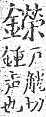 鑅戶觥切
鍾声也